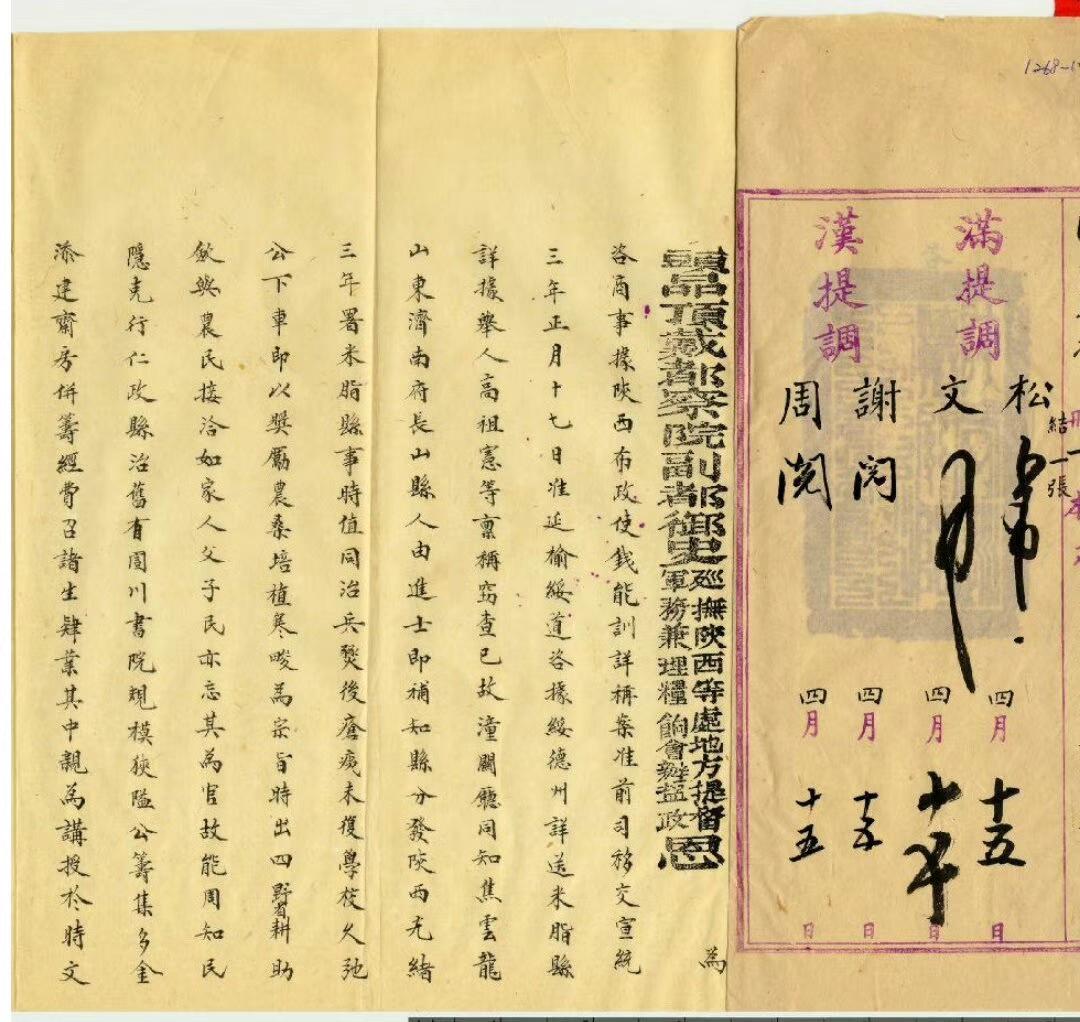 1268-1
結一張
滿提調
松
文
四月十五日
四月
日
漢提調
謝閱
周閱
四月十五日
四月十五日
頭品頂戴都察院副都御史巡撫陝西等處地方提督軍務兼理糧餉會辦鹽政恩 為
咨商事據陝西布政使錢能訓詳稱案准前司移交宣統
三年正月十七日准延榆綏道咨據綏德州詳送米脂縣
詳據舉人高祖憲等稟稱竊查已故潼關廳同知焦雲龍
山東濟南府長山縣人由進士即補知縣分發陝西光緒
三年署米脂縣事時值同治兵燹後瘡痍未復學校久弛
公下車即以獎勵農桑培植寒畯為宗旨時出四野省耕助
斂與農民接洽如家人父子民亦忘其為官故能周知民
隱克行仁政縣治舊有圁川書院規模狹隘公籌集多金
添建齋房併籌經費召諸生肄業其中親為講授於時文